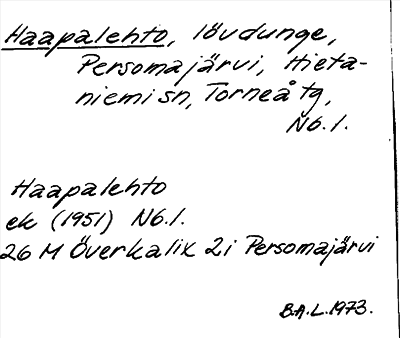 Haapalehto, lövdunge,
Persomajärvi, Hieta-
niemi sn, Torneå tg,
Nb.l.
Haapalehto
ek (1951) Nb.l.
26 M Överkalix 2i Persomajärvi
B.A.L.1973.